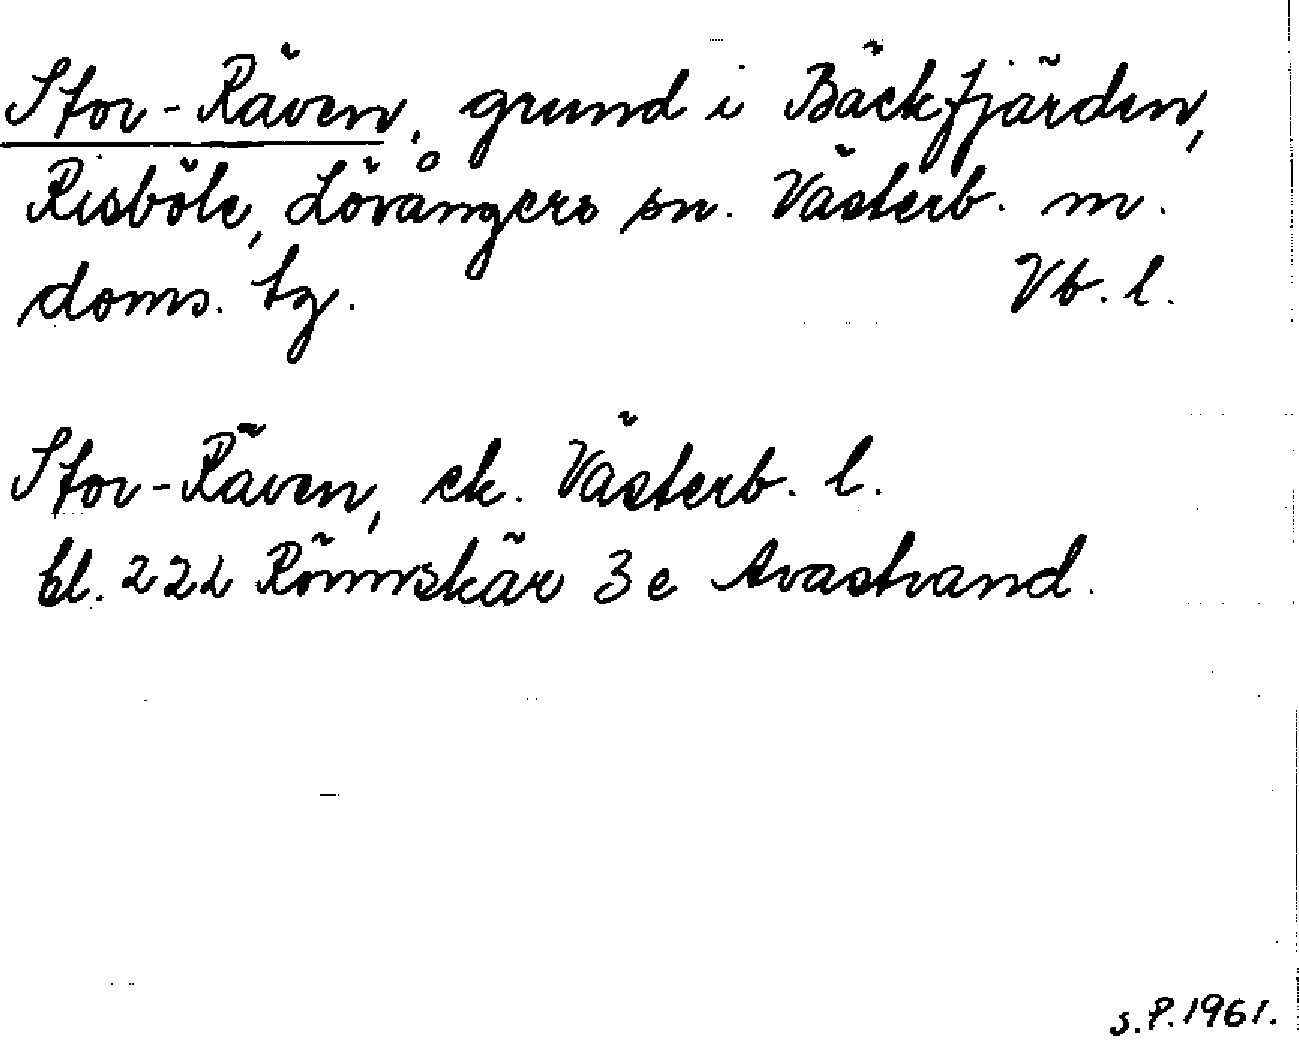 Stor-Räven, grund i Bäckfjärden,
Risböle, Lövångers sn. Västerb. m.
doms. tg. Vb. l.
Stor-Räven, ek. Västerb. l.
bl. 22L Rönnskär 3e Avastrand.
s.P.1961.